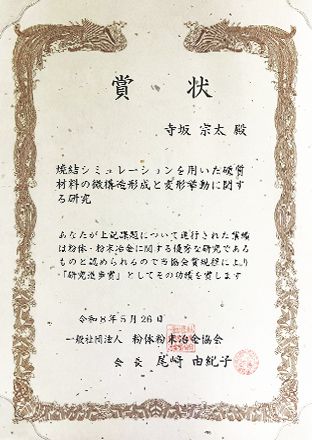 賞状
寺坂 宗太 殿
焼結シミュレーションを用いた硬質
材料の微構造形成と変形挙動に関す
る研究
あなたが上記課題について遂行された業績
は粉体・粉末冶金に関する優秀な研究である
ものと認められるので当協会賞規程により
「研究進歩賞」としてその功績を賞します
令和8年5月26日
一般社団法人 粉体粉末冶金協会
会長 尾﨑 由紀子